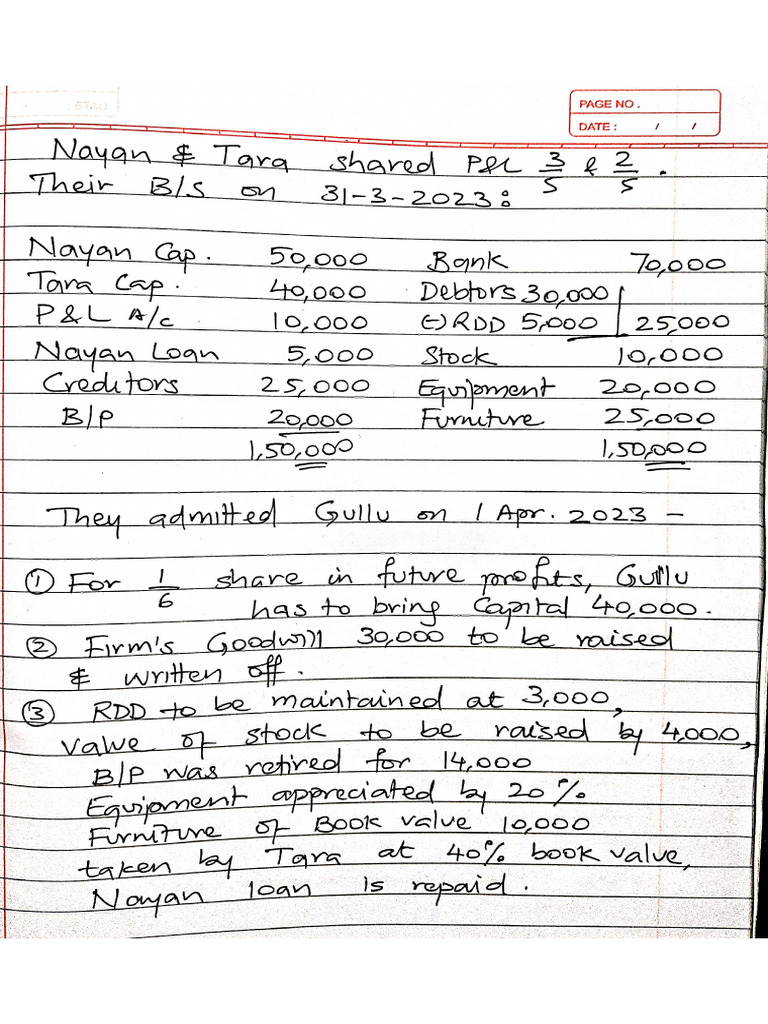 PAGE NO.
DATE: / /
Nayan & Tara shared P&L 3/5 & 2/5.
Their B/S on 31-3-2023:
Nayan Cap. 50,000 Bank 70,000
Tara Cap. 40,000 Debtors 30,000
P&L A/c 10,000 (-) RDD 5,000 25,000
Nayan Loan 5,000 Stock 10,000
Creditors 25,000 Equipment 20,000
B/P 20,000 Furniture 25,000
1,50,000 1,50,000
They admitted Gullu on 1 Apr. 2023 -
① For 1/6 share in future profits, Gullu
has to bring Capital 40,000.
② Firm's Goodwill 30,000 to be raised
& written off.
③ RDD to be maintained at 3,000,
value of stock to be raised by 4,000,
B/P was retired for 14,000
Equipment appreciated by 20%
Furniture of Book value 10,000
taken by Tara at 40% book value,
Nayan loan is repaid.